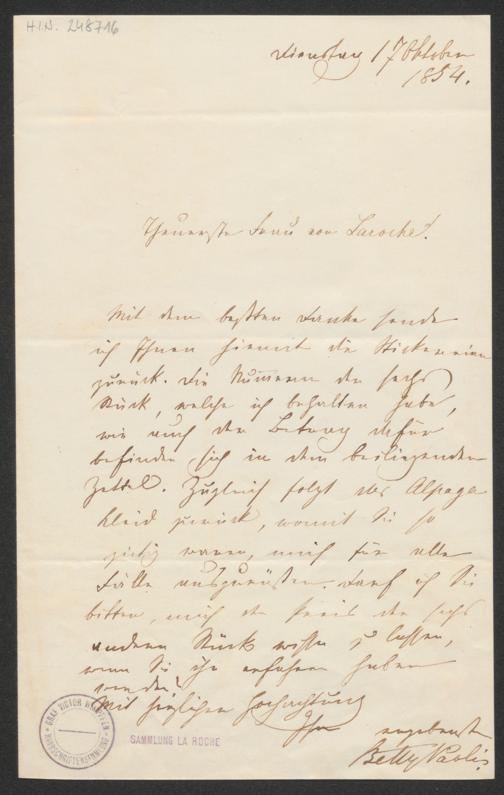 H.I.N. 248716
Dienstag 17 Oktober
1854.
Theuerste Frau von Laroche!
Mit dem beßten Danke sende
ich Ihnen hiemit die Stickereien
zurück. Die Numern der sechs
Stück, welche ich behalten habe,
wie auch der Betrag dafür
befinden sich in dem beiliegenden
Zettel. Zugleich folgt das Alpaga
Kleid zurück, womit Sie so
gütig waren, mich für alle
Fälle auszurüsten. Darf ich Sie
bitten, mich den Preis der sechs
andern Stück wissen zu lassen,
wenn Sie ihn erfahren haben
werden?
Mit herzlicher Hochachtung
Ihre ergebenste
Betty Paoli
GRAF VICTOR WIMPFFEN
HANDSCHRIFTENSAMMLUNG
SAMMLUNG LA ROCHE